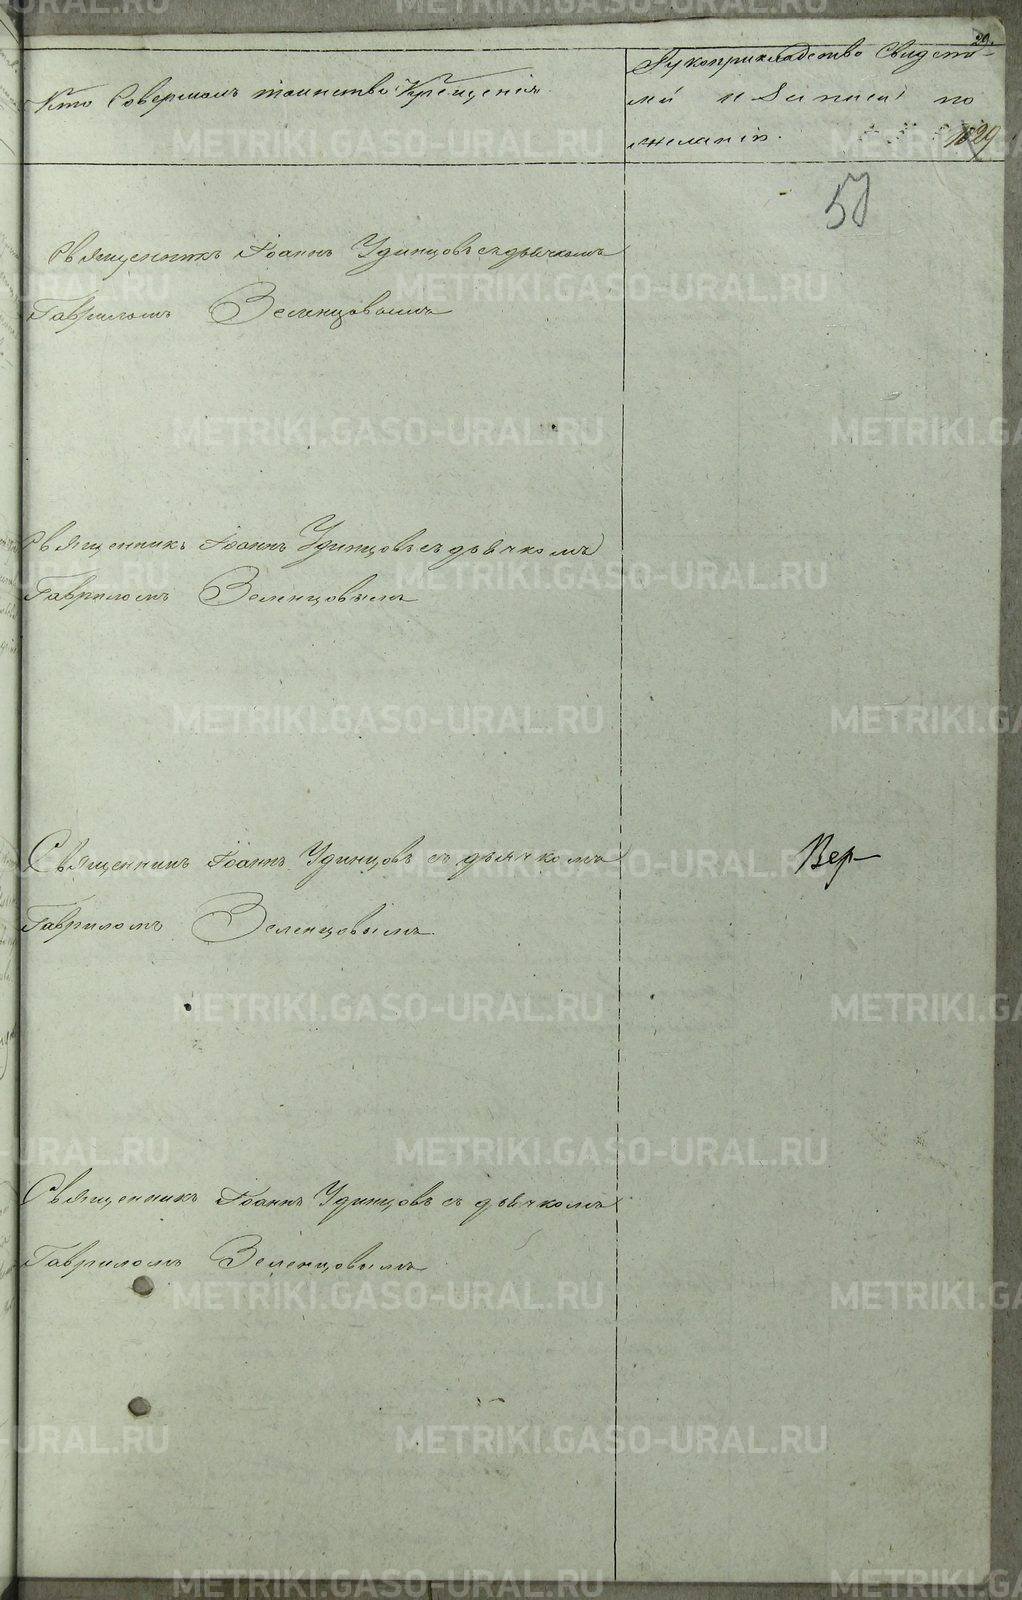 29.
Кто совершалъ таинство Крещенія.
Рукоприкладство свидѣте-
лей и записей по
желанію.
1829
57
Священникъ Іоаннъ Удинцовъ съ дьячкомъ
Гавриломъ Зеленцовымъ
Священникъ Іоаннъ Удинцовъ съ дьячкомъ
Гавриломъ Зеленцовымъ
Священникъ Іоаннъ Удинцовъ съ дьячкомъ
Гавриломъ Зеленцовымъ.
Вер
Священникъ Іоаннъ Удинцовъ съ дьячкомъ
Гавриломъ Зеленцовымъ
METRIKI.GASO-URAL.RU